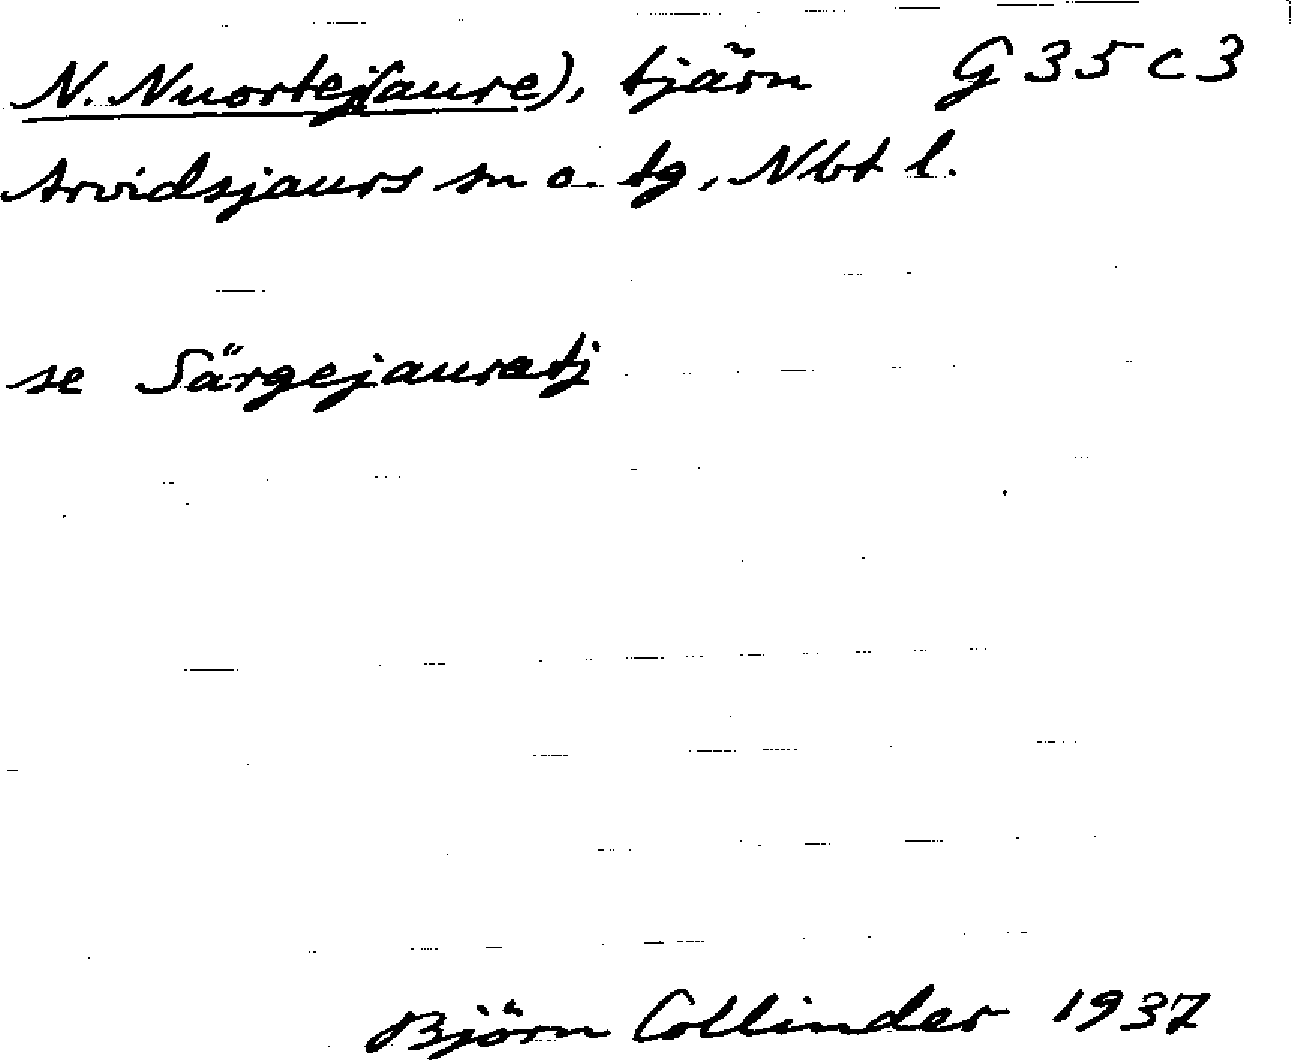 N. Nuortej(aure), tjärn G 35 c 3
Arvidsjaurs sn o. tg, Nbt l.
se Särgejauratj
Björn Collinder 1937